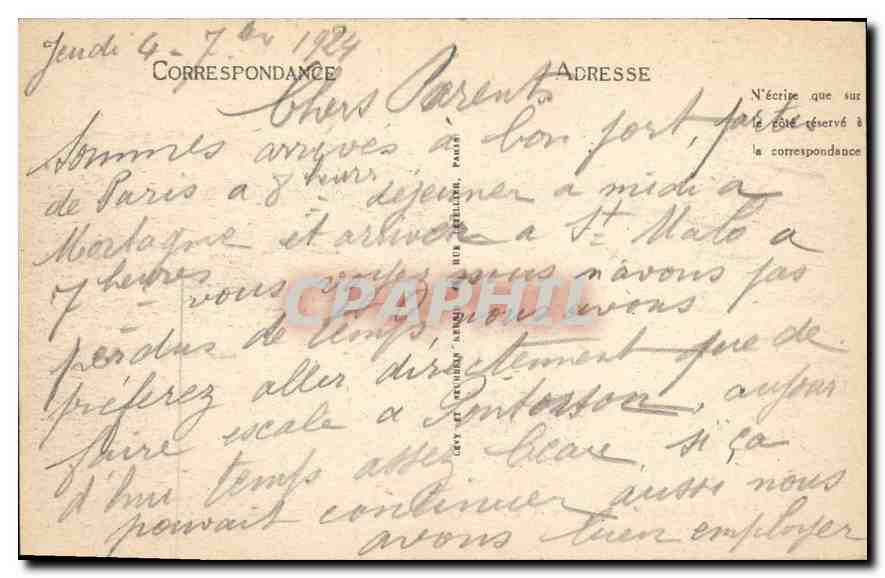 Jeudi 4 - 7bre 1924
CORRESPONDANCE
ADRESSE
N'écrire que sur
le côté réservé à
la correspondance
Chers Parents
Sommes arrivés à bon port, partis
de Paris a 8 heures déjeuner a midi a
Mortagne et arriver a St Malo a
7 heures vous voyez nous n'avons pas
perdus de temps, nous avons
préférez aller directement que de
faire escale a Pontorson, aujour
d'hui temps assez beau, si ça
pouvait continuer aussi nous
avons bien employer
LEVY ET NEURDEIN REUNIS, RUE LETELLIER, PARIS
CPAPHIL